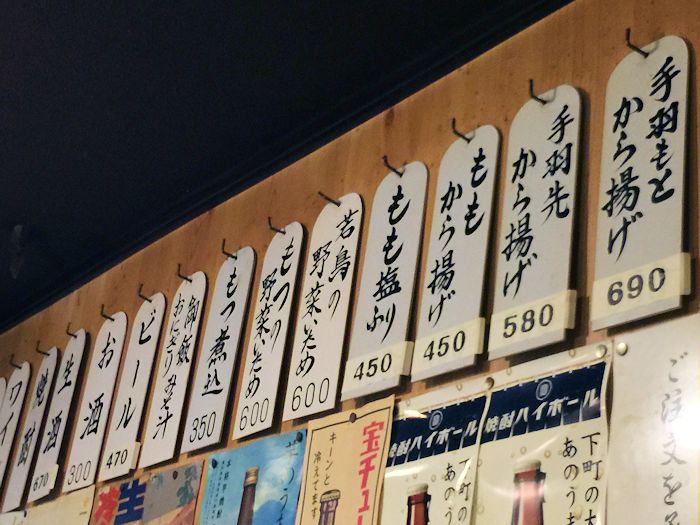 手羽もと
から揚げ
690
手羽先
から揚げ
580
もも
から揚げ
450
もも塩ふり
450
若鳥の
野菜いため
600
もつの
野菜いため
600
もつ煮込
350
御飯
おにぎり
みそ汁
ビール
470
お酒
300
生酒
焼酎
670
ワイ
ご注文を
焼酎ハイボール
下町の
あのう
焼酎ハイボール
下町の
あのう
宝チュー
キーンと
冷えてます
本格芋焼酎
生